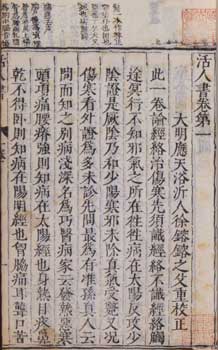 活人書卷第一
大明應天浴沂人徐鎔春沂父重校正
此一卷論經絡治傷寒先須識經絡不識經絡觸
途冥行不知邪氣之所在往往病在太陽反攻少
陰證是厥陰乃和少陽寒邪未除真氣受斃又況
傷寒看外證為多未診先問最為有准孫真人云
問而知之別病淺深名為巧醫病家云發熱惡寒
頭項痛腰脊強則知病在太陽經也身熱目疼鼻
乾不得臥則知病在陽明經也胷脇痛耳聾口苦